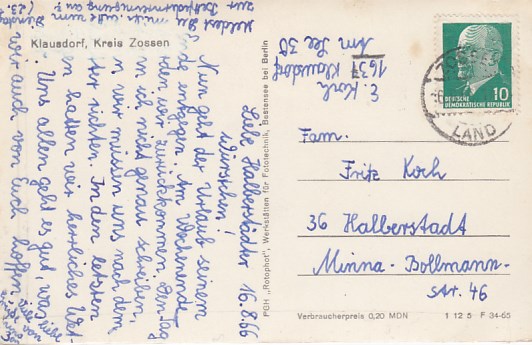 Klausdorf, Kreis Zossen
16.8.66
Liebe Halberstädter
Würstchen!
Nun geht der Urlaub seinem
Ende entgegen. Am Wochenende
werden wir zurückkommen, den Tag
kann ich nicht genau schreiben,
denn wir müssen uns nach dem
Wetter richten. In den letzten
Tagen hatten wir herrliches Wet-
ter. Uns allen geht es gut, was
wir auch von Euch hoffen. Viele
liebe
Grüße von
Meldest Du mich bitte zum
zur
an?
(23.8.
PGH „Rotophot", Werkstätten für Fototechnik, Bestensee bei Berlin
E. Koch
1631 Klausdorf
Am See 30
ZOSSEN
LAND
10
DEUTSCHE
DEMOKRATISCHE REPUBLIK
Fam.
Fritz Koch
36 Halberstadt
Minna-Bollmann-
Str. 46
Verbraucherpreis 0,20 MDN
1 12 5 F 34-65